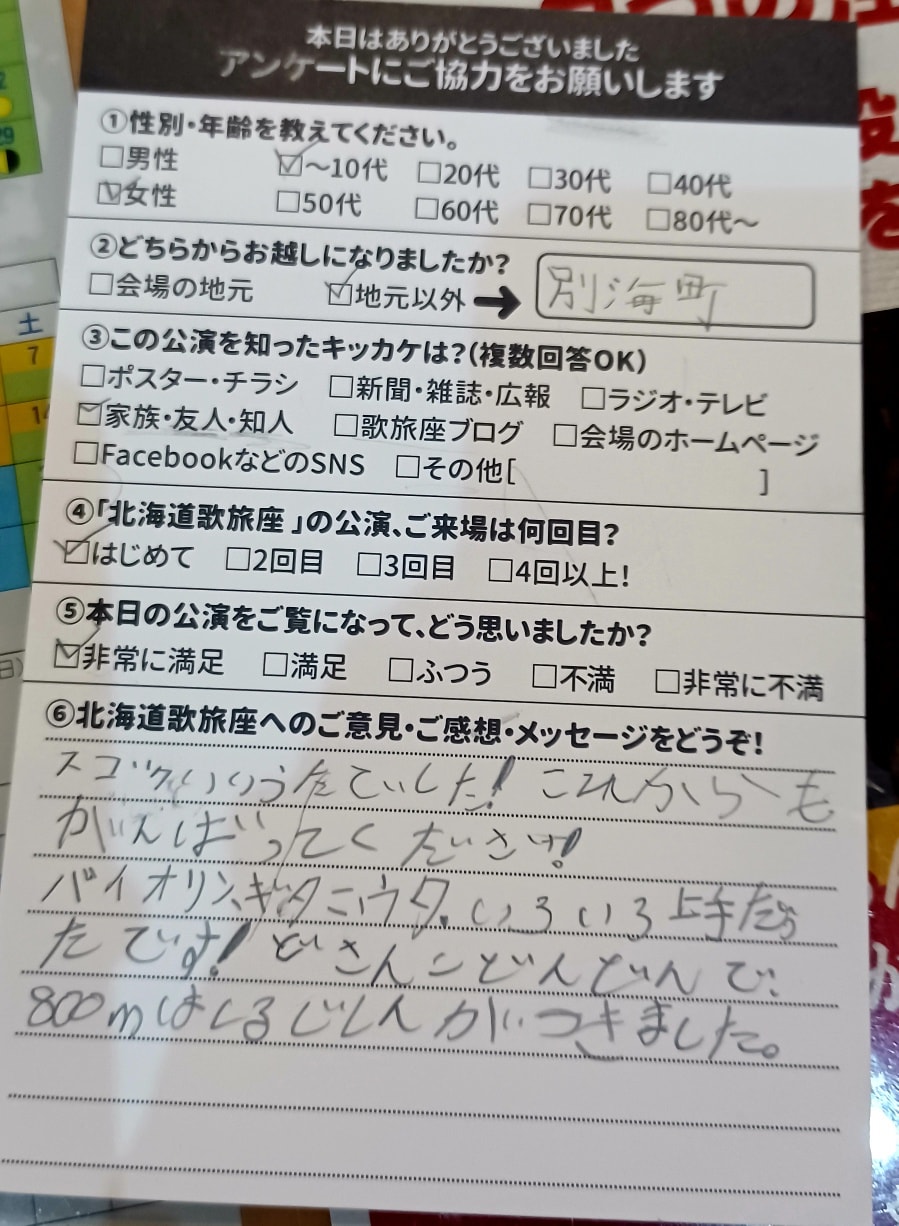 本日はありがとうございました
アンケートにご協力をお願いします
①性別・年齢を教えてください。
□男性 ☑～10代 □20代 □30代 □40代
☑女性 □50代 □60代 □70代 □80代～
②どちらからお越しになりましたか?
□会場の地元 ☑地元以外➡ 別海町
③この公演を知ったキッカケは?(複数回答OK)
□ポスター・チラシ □新聞・雑誌・広報 □ラジオ・テレビ
☑家族・友人・知人 □歌旅座ブログ □会場のホームページ
□FacebookなどのSNS □その他[ ]
④「北海道歌旅座」の公演、ご来場は何回目?
☑はじめて □2回目 □3回目 □4回以上!
⑤本日の公演をご覧になって、どう思いましたか?
☑非常に満足 □満足 □ふつう □不満 □非常に不満
⑥北海道歌旅座へのご意見・ご感想・メッセージをどうぞ!
スゴクいいうたでした! これからも
がんばってください!
バイオリン、ギタニウタ、いろいろ上手だっ
たです! どさんこどんどんで
800mはしるじしんがつきました。
土
7
14